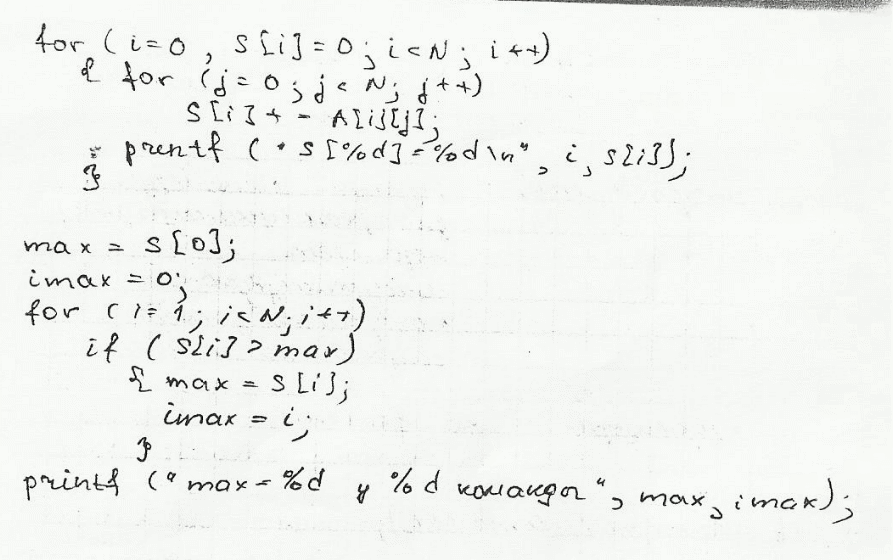 for ( i=0 , S[i]=0; i<N; i++)
{ for (j=0; j<N; j++)
S[i] += A[i][j];
printf ( " S[%d]=%d\n", i, S[i]);
}
max = S[0];
imax = 0;
for ( i=1; i<N; i++)
if ( S[i] > max)
{ max = S[i];
imax = i;
}
printf (" max=%d у %d команды", max, imax);